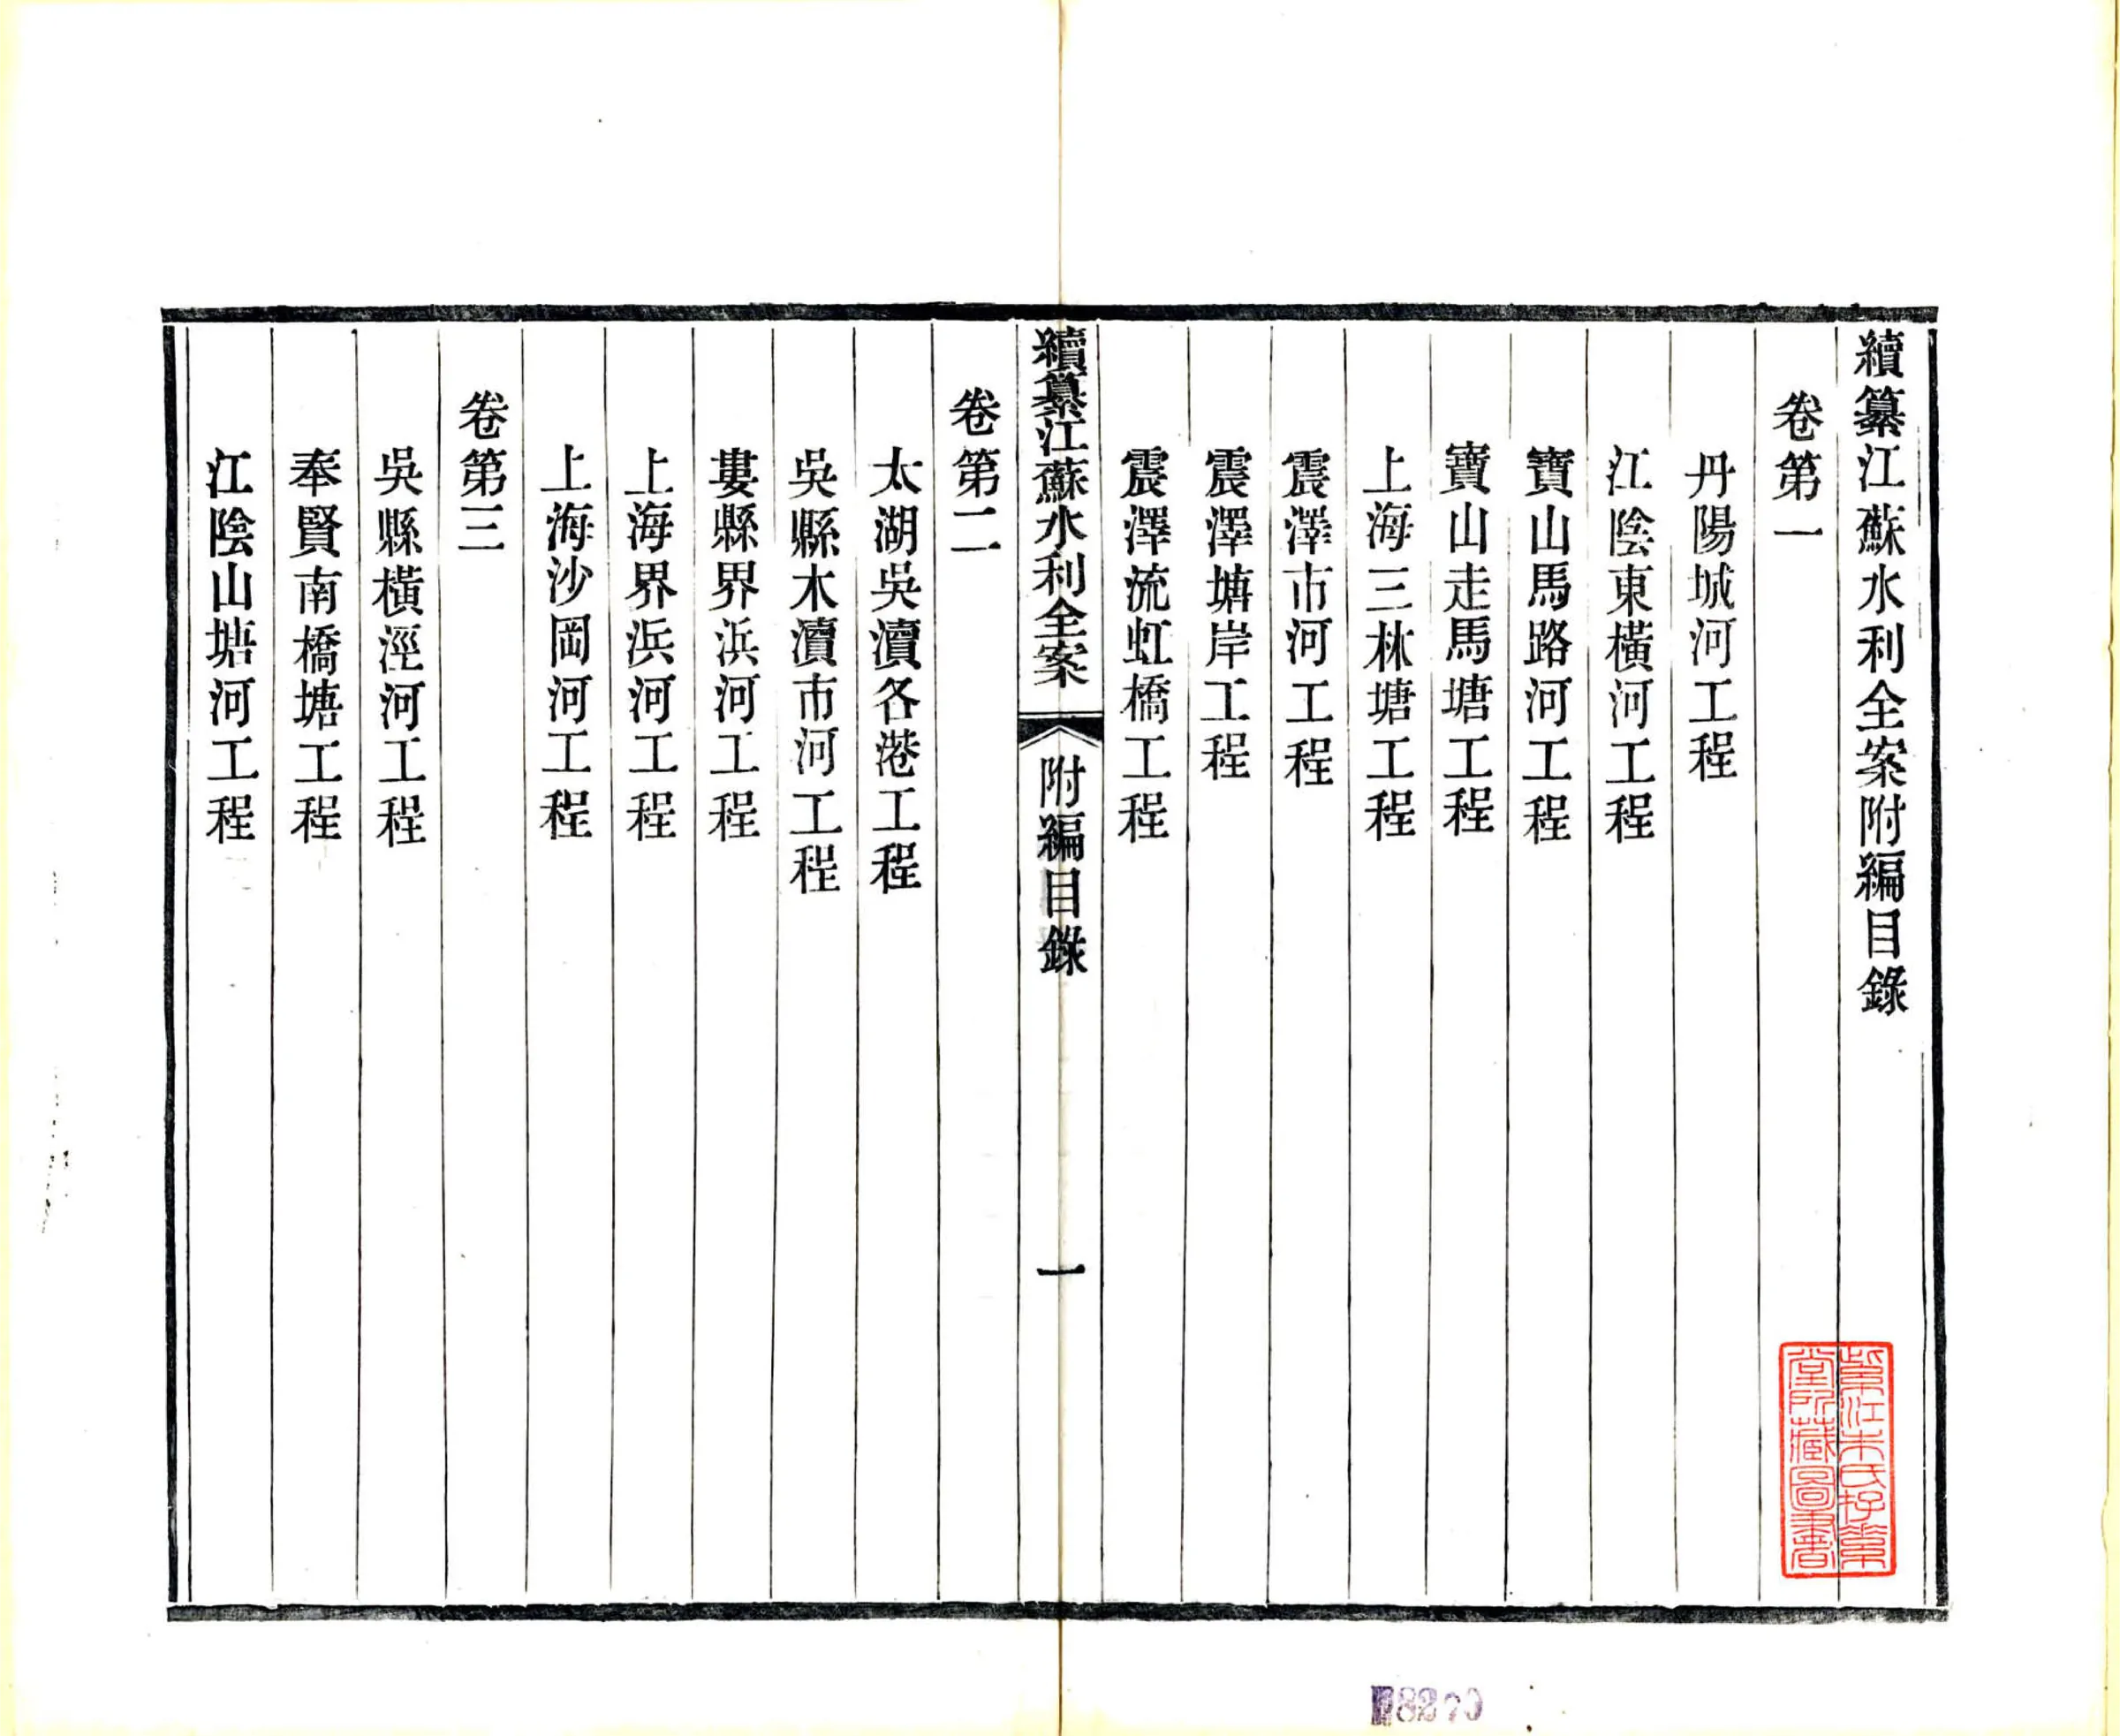 續纂江蘇水利全案附編目錄
卷第一
丹陽城河工程
江陰東橫河工程
寶山馬路河工程
寶山走馬塘工程
上海三林塘工程
震澤市河工程
震澤塘岸工程
震澤流虹橋工程
續纂江蘇水利全案
附編目錄
一
卷第二
太湖吳瀆各港工程
吳縣木瀆市河工程
婁縣界浜河工程
上海界浜河工程
上海沙岡河工程
卷第三
吳縣橫涇河工程
奉賢南橋塘工程
江陰山塘河工程
堂所藏圖書